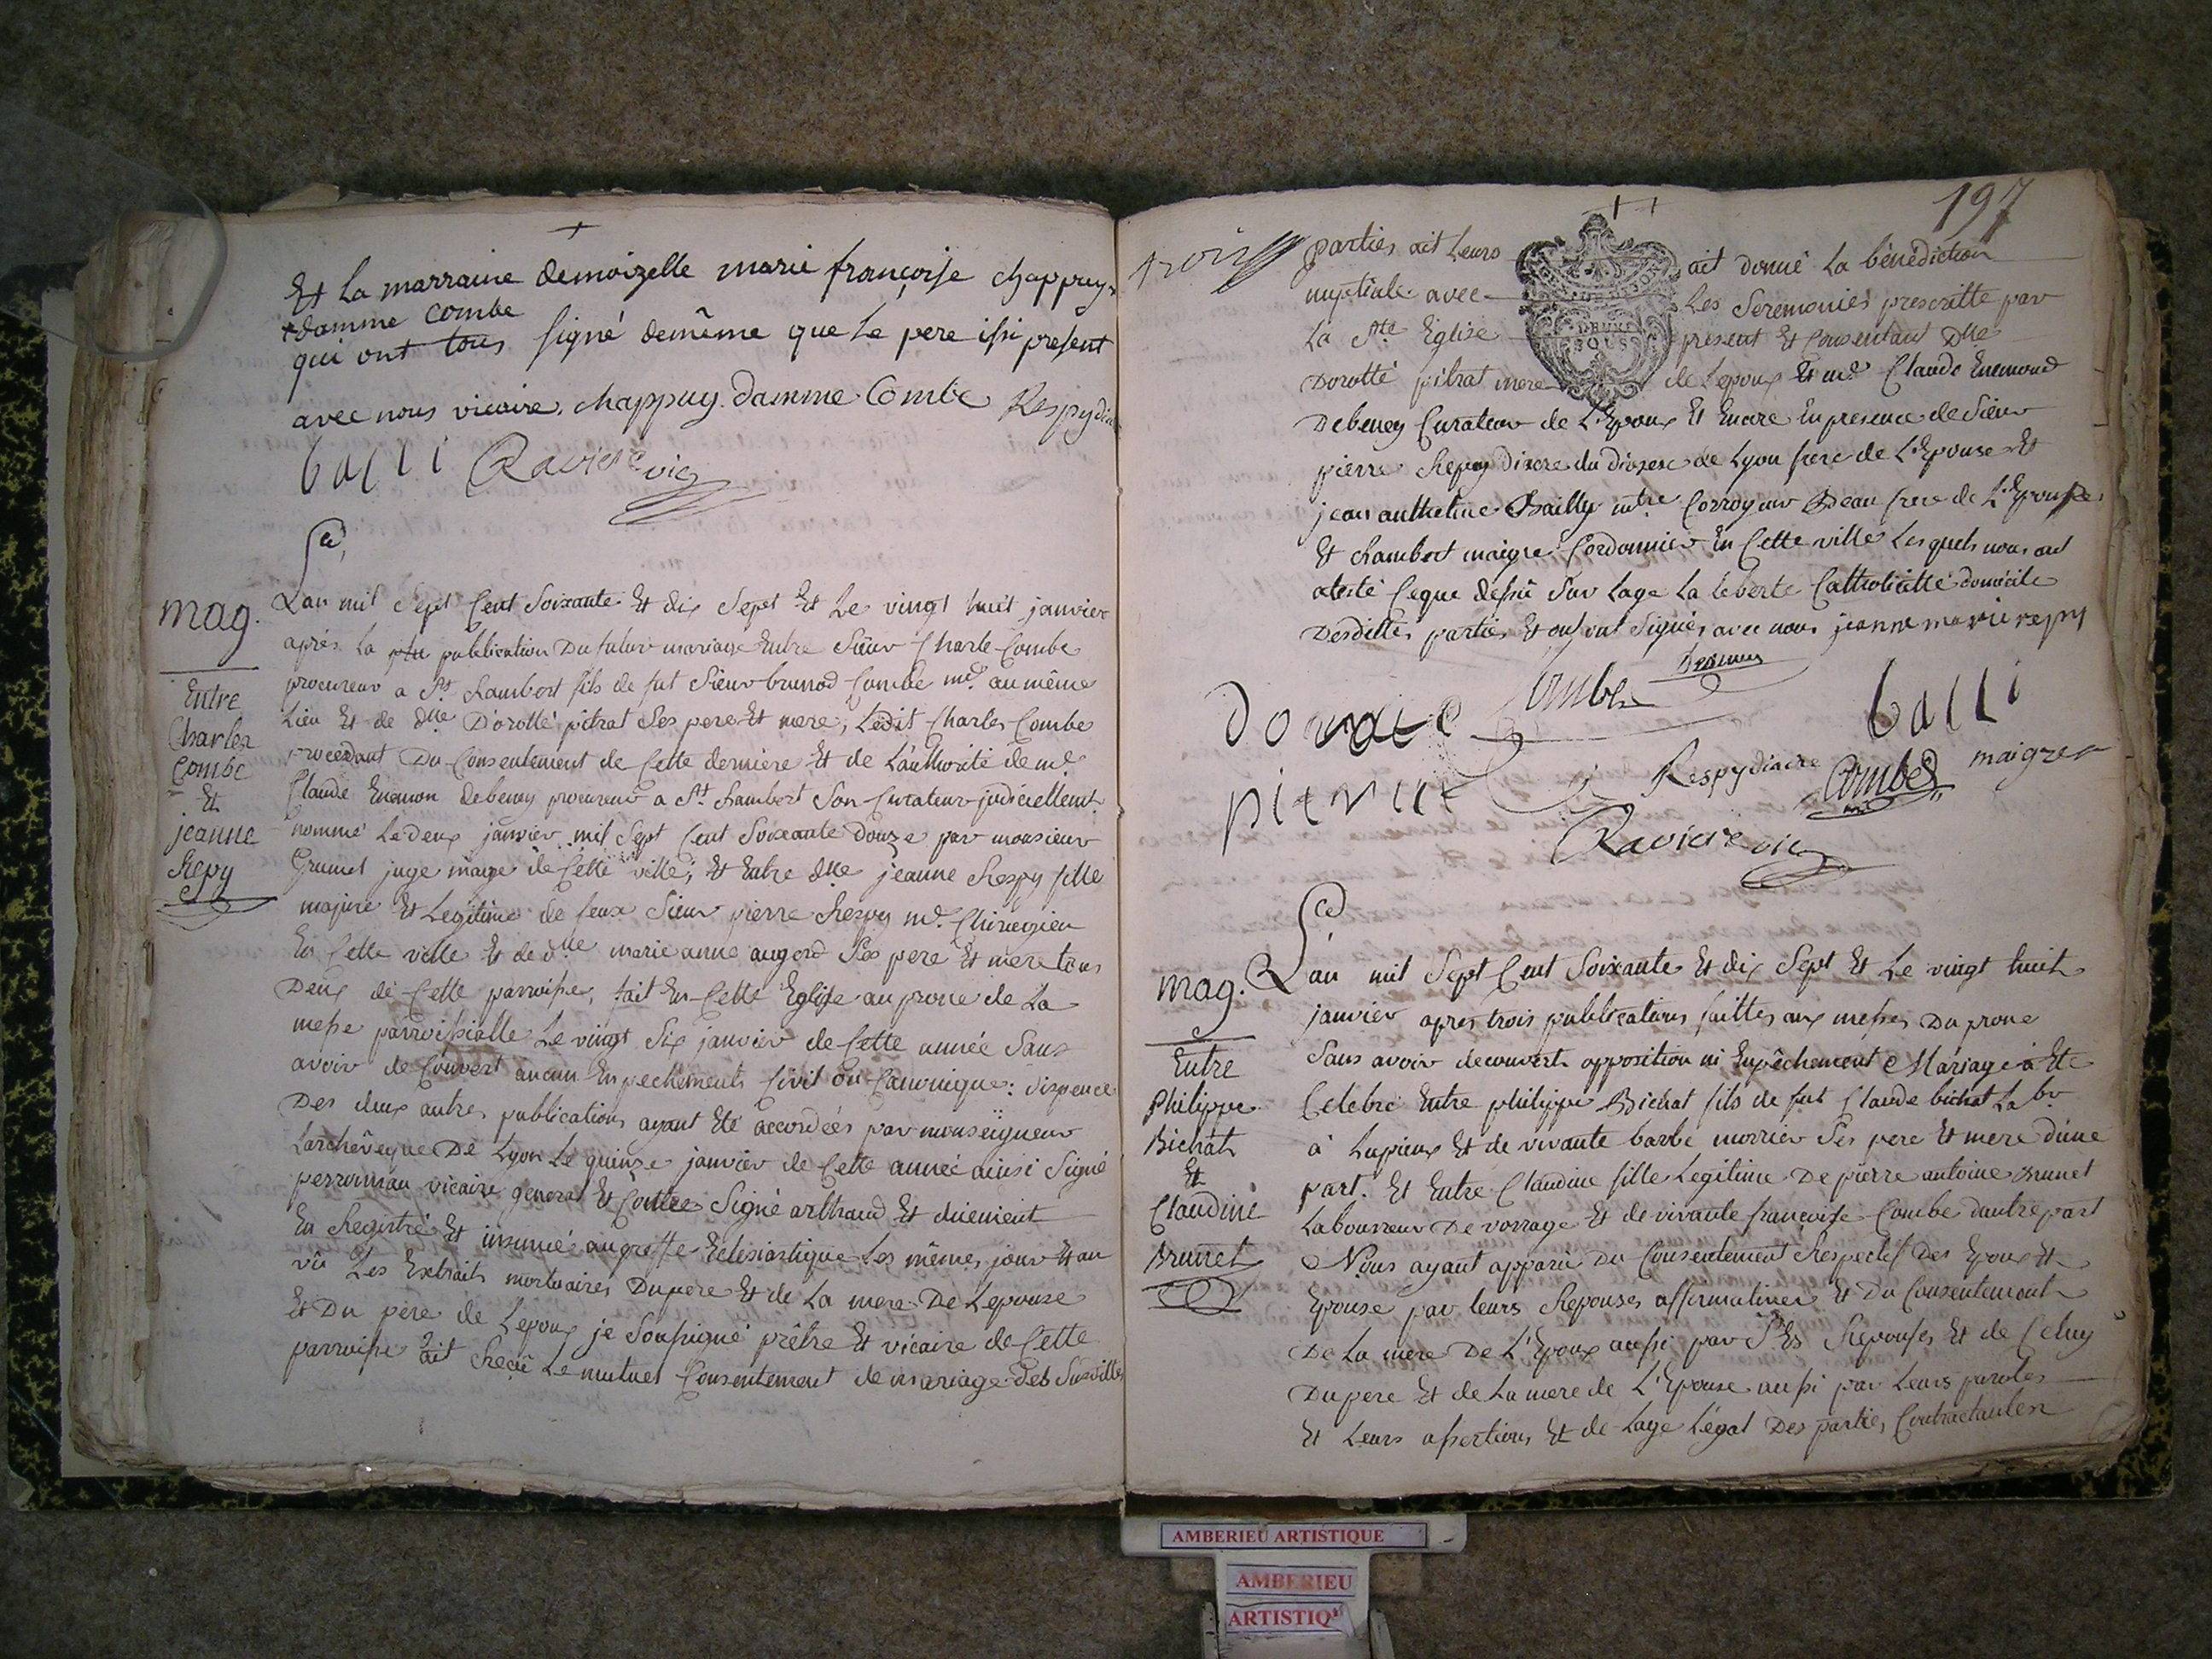 Et la marraine demoizelle marie françoise chappuy
+damme combe
qui ont tous signé demême que le pere issi present
avec nous vicaire. chappuy. damme Combe Respydia
balli Raviere vic
Sce,
mag.
Entre
Charles
Combe
Et
jeanne
Repy
Lan mil Sept Cent Soixante Et dix Sept Et Le vingt huit janvier
aprés La publication Du futur mariage Entre Sieur Charle Combe
procureur a St. Rambert fils de fut Sieur brunod Combe md. au même
Lieu Et de dlle D'orotté pitrat Ses pere Et mere, Ledit Charles Combe
procedant Du Consentement de Cette derniere Et de L'authorité de me.
Claude Enemon debeney procureur a St. Rambert Son Curateur judiciellemt.
nommé Le deux janvier mil Sept Cent Soixante douze par monsieur
Grumet juge mage de Cette ville, Et Entre dlle jeanne Respy fille
majure Et Legitime de feux Sieur pierre Respy me. Chirurgien
En Cette ville Et de dlle marie anne augerd Ses pere Et mere tous
Deux de Cette parroisse, fait En Cette Eglise au prone de La
messe parroissialle Le vingt Six janvier de Cette année Sans
avoir de Couvert aucun Enpechements Civil ou Canonique: dispence
Des deux autres publications ayant Eté accordées par monseigneur
Larchêveque De Lyon Le quinze janvier de Cette année ainsi Signé
vicaire general Et Contre Signé arthaud Et duement
En Registré Et insinué au greffe Eclesiastique Les même, jour Et an
vû Les Extraits mortuaires Du pere Et de La mere De Lepouse
Et Du père de Lepoux je Soussigné prêtre Et vicaire de Cette
parroisse ait Reçû Le mutuel Consentement de mariage Des Susdittes
197
parties ait Leurs ait donné La bénédiction
nuptiale avec Les Seremonies prescritte par
La Ste Eglise present Et Consentant Dlle
Dorotté pitrat mere de Lepoux Et me. Claude Enemond
Debeney Curateur de L'Epoux Et Encore En presence de Sieur
pierre Repy Diacre du Diozese de Lyon frere de L'Epouse Et
jean anthelme Bailly mtre Corroyeur Beau frere de L'Epouse
Et Rambert maigre Cordonnier En Cette ville Lesquels nous ont
atesté Ceque dessû Sur Lage La leberté Catholicitté domicile
Desdittes parties Et ont Signés avec nous jeanne marie repy
Combe
balli
Respydiacre Combes maigre
Raviere vic
Sce,
mag.
Entre
Philippe
Bichat
Et
Claudine
Brunet
Lan mil Sept Cent Soixante Et dix Sept Et Le vingt huit
janvier apres trois publications faittes aux messes Du prone
Sans avoir decouvert opposition ni Enpêchement Mariage a Eté
Celebré Entre philippe Bichat fils de fut Claude bichat Labr.
à Lupieux Et de vivante barbe morrier Ses pere Et mere d'une
part. Et Entre Claudine fille Legitime De pierre antoine Brunet
Laboureur De vorrage Et de vivante françoise Combe dautre part
Nous ayant apparu Du Consentement Respectif Des Epoux Et
Epouse par leurs Reponses affirmatives Et Du Consentement
De La mere De L'Epoux aussi par Ses Reponses Et de Celuy
Du pere Et de La mere de L'Epouse aussi par Leurs paroles
Et Leurs assertions Et de Lage Légal Des parties Contractantes
AMBERIEU ARTISTIQUE
AMBERIEU
ARTISTIQ